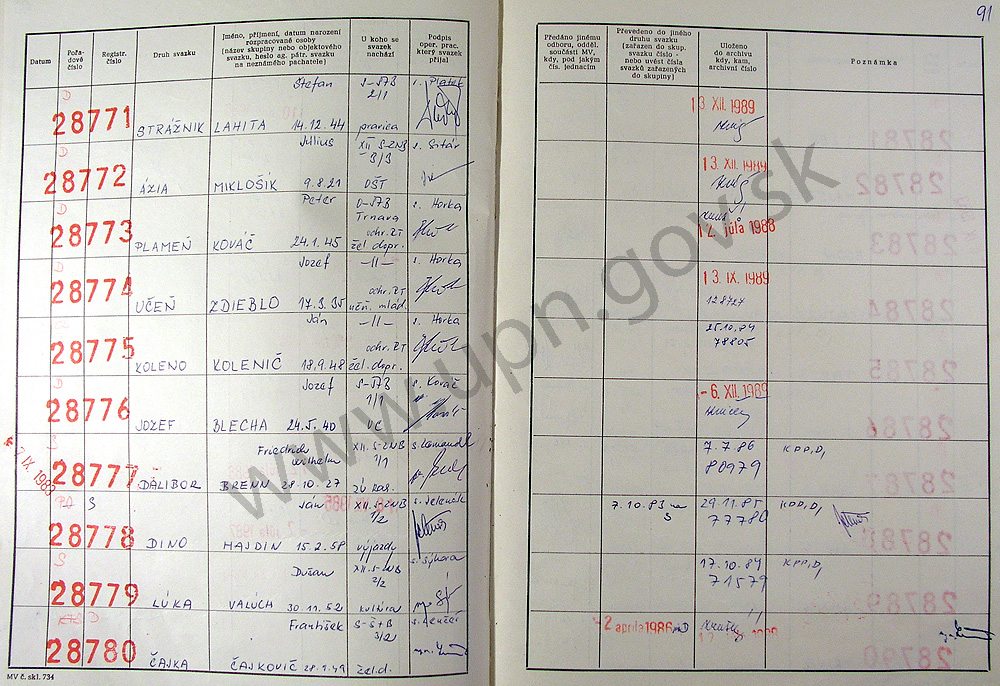 91
Datum
Pořa-
dové
číslo
Registr.
číslo
Druh svazku
Jméno, příjmení, datum narození
rozpracované osoby
(název skupiny nebo objektového
svazku, heslo ag. pátr. svazku
na neznámého pachatele)
U koho se
svazek
nachází
Podpis
oper. prac.
který svazek
přijal
Předáno jinému
odboru, odděl.
součásti MV,
kdy, pod jakým
čís. jednacím
Převedeno do jiného
druhu svazku
(zařazen do skup.
svazku číslo -
nebo uvést čísla
svazků zařazených
do skupiny)
Uloženo
do archivu
kdy, kam,
archivní číslo
Poznámka
D
28771
STRÁŽNIK
Štefan
LAHITA 14.12.44
S-ŠTB
2/1
pravica
s. Platek
13. XII. 1989
D
28772
ÁZIA
Július
MIKLOŠÍK 9.8.21
XII S-ZNB
3/3
OŠT
s. Sitár
13. XII. 1989
D
28773
PLAMEŇ
Peter
KOVÁČ 24.1.45
O-ŠTB
Trnava
ochr. ZT
žel. dopr.
s. Horka
12. júla 1988
D
28774
UČEŇ
Jozef
ZDIEBLO 17.3.35
-11-
ochr. ZT
učň. mlád.
s. Horka
13. IX. 1989
128727
28775
KOLENO
Ján
KOLENIČ 18.9.48
-11-
ochr. ZT
žel. dopr.
s. Horka
25.10.84
78805
28776
JOZEF
Jozef
BLECHA 24.5.40
S-ŠTB
1/1
VC
s. Kovač
-6. XII. 1989
7 IX. 1983
28777
DALIBOR
Friedrich
Wilhelm
BRENN 28.10.27
XII. S-ZNB
1/1
s. Komandel
7.7.86
80979
KPP,D,
S
28778
DINO
Ján
HAJDIN 15.2.58
XII. S-ZNB
1/2
výjazdy
s. Jelenák
7.10.83 na
S
29.11.85
77780
KPP,D,
S
28779
LÚKA
Dušan
VALÚCH 30.11.52
XII. S-ZNB
2/2
kultúra
s. Sýkora
17.10.84
71579
KPP,D,
D
28780
ČAJKA
František
ČAJKOVIČ 28.1.49
S-ŠtB
3/2
žel.d.
2 apríla 1986
MV č. skl. 734
www.upn.gov.sk